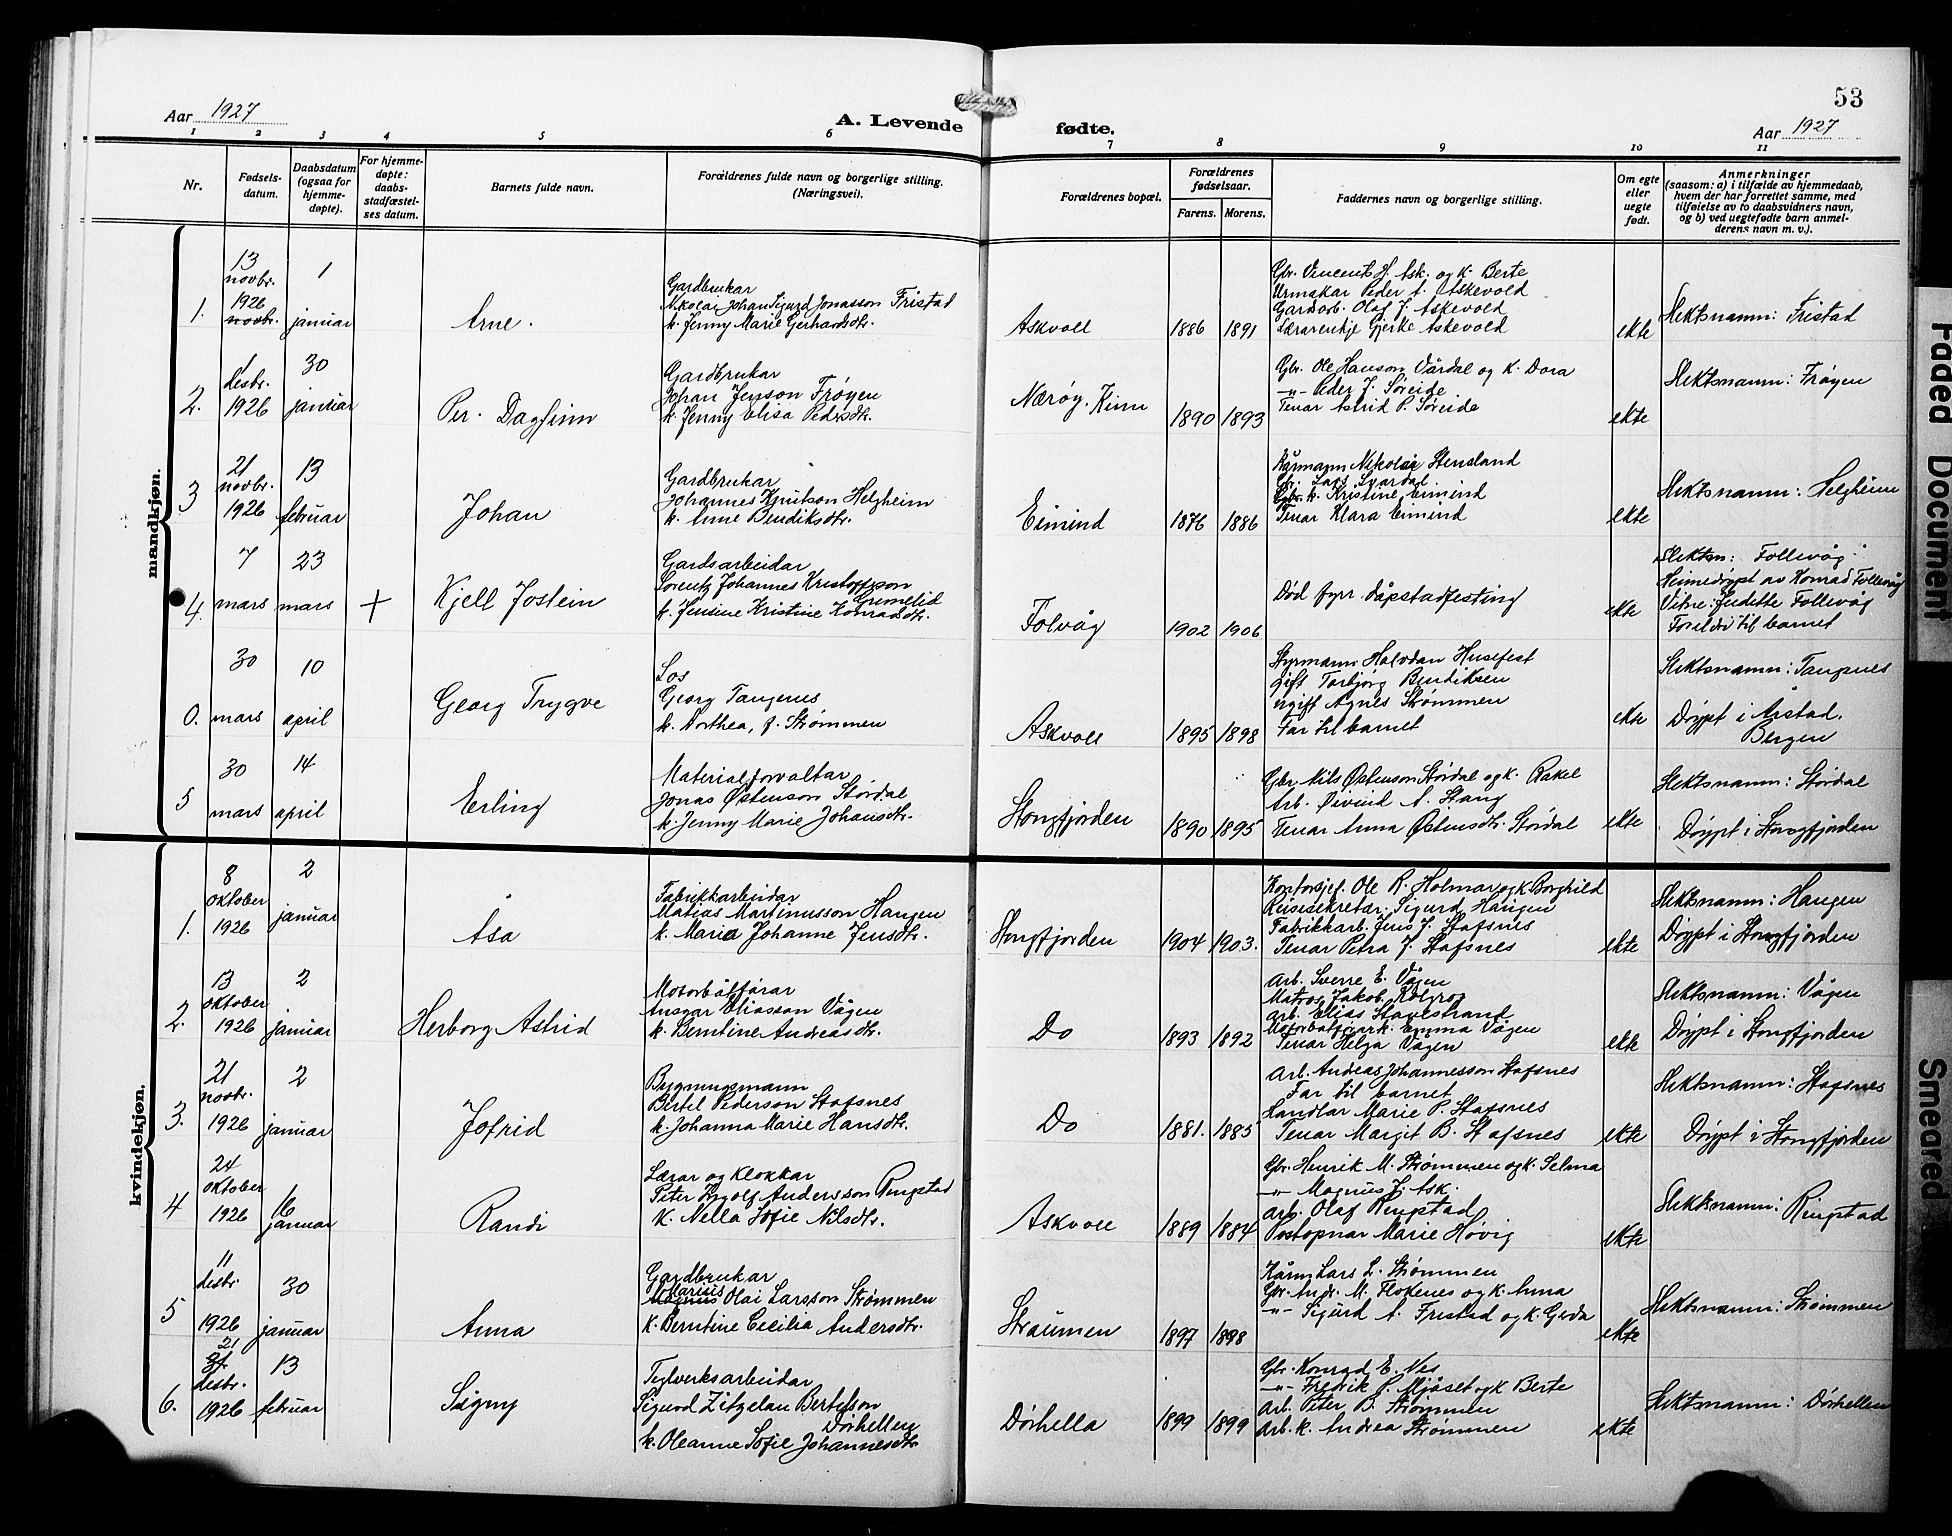 53
Aar 1927
A. Levende fødte.
Aar 1927
1 2 3 4 5 6 7 8 9 10 11
Nr.
Fødsels-
datum.
Daabsdatum
(ogsaa for
hjemme-
døpte).
For hjemme-
døpte:
daabs-
stadfæstel-
ses datum.
Barnets fulde navn.
Forældrenes fulde navn og borgerlige stilling.
(Næringsvei).
Forældrenes bopæl.
Forældrenes
fødselsaar.
Farens. Morens.
Faddernes navn og borgerlige stilling.
Om egte
eller
uegte
født.
Anmerkninger
(saasom: a) i tilfælde av hjemmedaab,
hvem der har forrettet samme, med
tilføielse av to daabsvidners navn,
og b) ved uegtefødte barn anmel-
derens navn m. v.).
mandkjøn.
1.
13
novbr.
1926
novbr.
1
januar
Arne.
Gardbrukar
Nikolai Johan Sigurd Jonasson Fristad
k. Jenny Marie Gerhardsdtr.
Askvoll
1886
1891
Gbr. Vincent H. Ask. og k. Berte
Urmakar Peder A. Askevold
Gardarb. Olaf J. Askevold
Lærarenkje Gjerte Askevold
ekte
Slektsnamn: Fristad
2.
1
desbr.
1926
30
januar
Per. Dagfinn
Gardbrukar
Johan Jenson Frøyen
k. Jenny Elisa Pedersdtr.
Nærøy. Kinn
1890
1893
Gbr. Ole Hanson Vårdal og k. Dora
-"- Peder J. Søreide
Tenar Astrid P. Søreide
ekte
Slektsnamn: Frøyen
3
21
novbr.
1926
13
februar
Johan
Gardbrukar
Johannes Knutson Helgheim
k. Anne Bendiksdtr.
Eimind
1876
1886
Kårmann Nikolai Stensland
Gbr. Lars Svardal
Gbr. k. Kristine Eimind
Tenar Klara Eimind
ekte
Slektsnamn: Helgheim
4.
7
mars
23
mars
+
Kjell Jostein
Gardsarbeidar
Lorentz Johannes Kristofferson
Grimelid
k. Jensine Kristine Konradsdtr.
Folvåg
1902
1906
Død fyrr dåpstadfesting
ekte
Slektsn: Follevåg
Heimedøypt av Konrad Follevåg
Vitne: Follevåg
Foreldri til barnet
0.
30
mars
10
april
Georg Trygve
Los
Georg Tangenes
k. Dorthea, f. Strømmen
Askvoll
1895
1898
Styrmann Halvdan Husefest
gift Torbjørg Bendiksen
ugift Agnes Strømmen
Far til barnet
ekte
Slektsnamn: Tangenes
Døypt i Årstad.
Bergen
5
30
mars
14
april
Erling
Materialforvaltar
Jonas Østenson Stórdal
k. Jenny Marie Johansdtr.
Stongfjorden
1890
1895
Gbr. Nils Østenson Stórdal og k. Rakel
Arb. Øivind A. Stang
Tenar Anna Østensdtr. Stórdal
ekte
Slektsnamn: Stórdal
Døypt i Stongfjorden
kvindekjøn.
1.
8
oktober
1926
2
januar
Åsa
Fabrikkarbeidar
Matias Martinusson Haugen
k. Maria Johanne Jensdtr.
Stongfjorden
1904
1903.
Kontorsjef. Ole R. Holmar og k. Borghild
Reisesekretær. Sigurd Haugen
Fabrikkarb. Jens J. Stafsnes
Tenar Petra J. Stafsnes
ekte
Slektsnamn: Haugen
Døypt i Stongfjorden
2.
13
oktober
1926
2
januar
Herborg Astrid
Motorbåtførar
Ansgar Eliasson Vågen
k. Berntine Andreasdtr.
Do
1893
1892
Arb. Sverre E. Vågen
Matros Jakob
Arb. Elias Stavestrand
Emma Vågen
Tenar Helga Vågen
ekte
Slektsnamn: Vågen
Døypt i Stongfjorden
3.
21
novbr.
1926
2
januar
Jofrid
Bygningsmann
Bertel Pederson Stafsnes
k. Johanna Marie Hansdtr.
Do
1881.
1885
Arb. Andreas Johannesson Stafsnes
Far til barnet
Handlar Marie P. Stafsnes
Tenar Margit B. Stafsnes
ekte
Slektsnamn: Stafsnes
Døypt i Stongfjorden
4
24
oktober
1926
16
januar
Randi
Lærar og klokkar
Peter Ingolf Andersson Ringstad
k. Nella Sofie Nilsdtr.
Askvoll
1889
1884
Gbr. Henrik M. Strømmen og k. Selma
-"- Magnus J. Ask.
Arb. Olaf Ringstad
Postopnar Marie Høvig
ekte
Slektsnamn: Ringstad
5
11
desbr
1926
30
januar
Anna
Gardbrukar
Marius
Magnus Olai Larsson Strømmen
k. Berntine Cecilia Andersdtr.
Straumen
1897
1898
Kårm. Lars L. Strømmen
Gbr. Andr. M. Flokenes og k. Anna
-"- Sigurd A. Fristad og k. Gerda
ekte
Slektsnamn: Strømmen
6.
21
desbr.
1926
13
februar
Signy
Teglverksarbeidar
Sigurd Zitzelau Bertelson
Dórhellen
k. Oleanne Sofie Johannesdtr
Dórhella
1899
1899
Gbr. Konrad E. Nes
-"- Fredrik P. Mjåset og k. Berte
Arb. Peter B. Strømmen
Arb. k. Andrea Strømmen
ekte
Slektsnamn: Dórhellen
Faded Document
Smeared